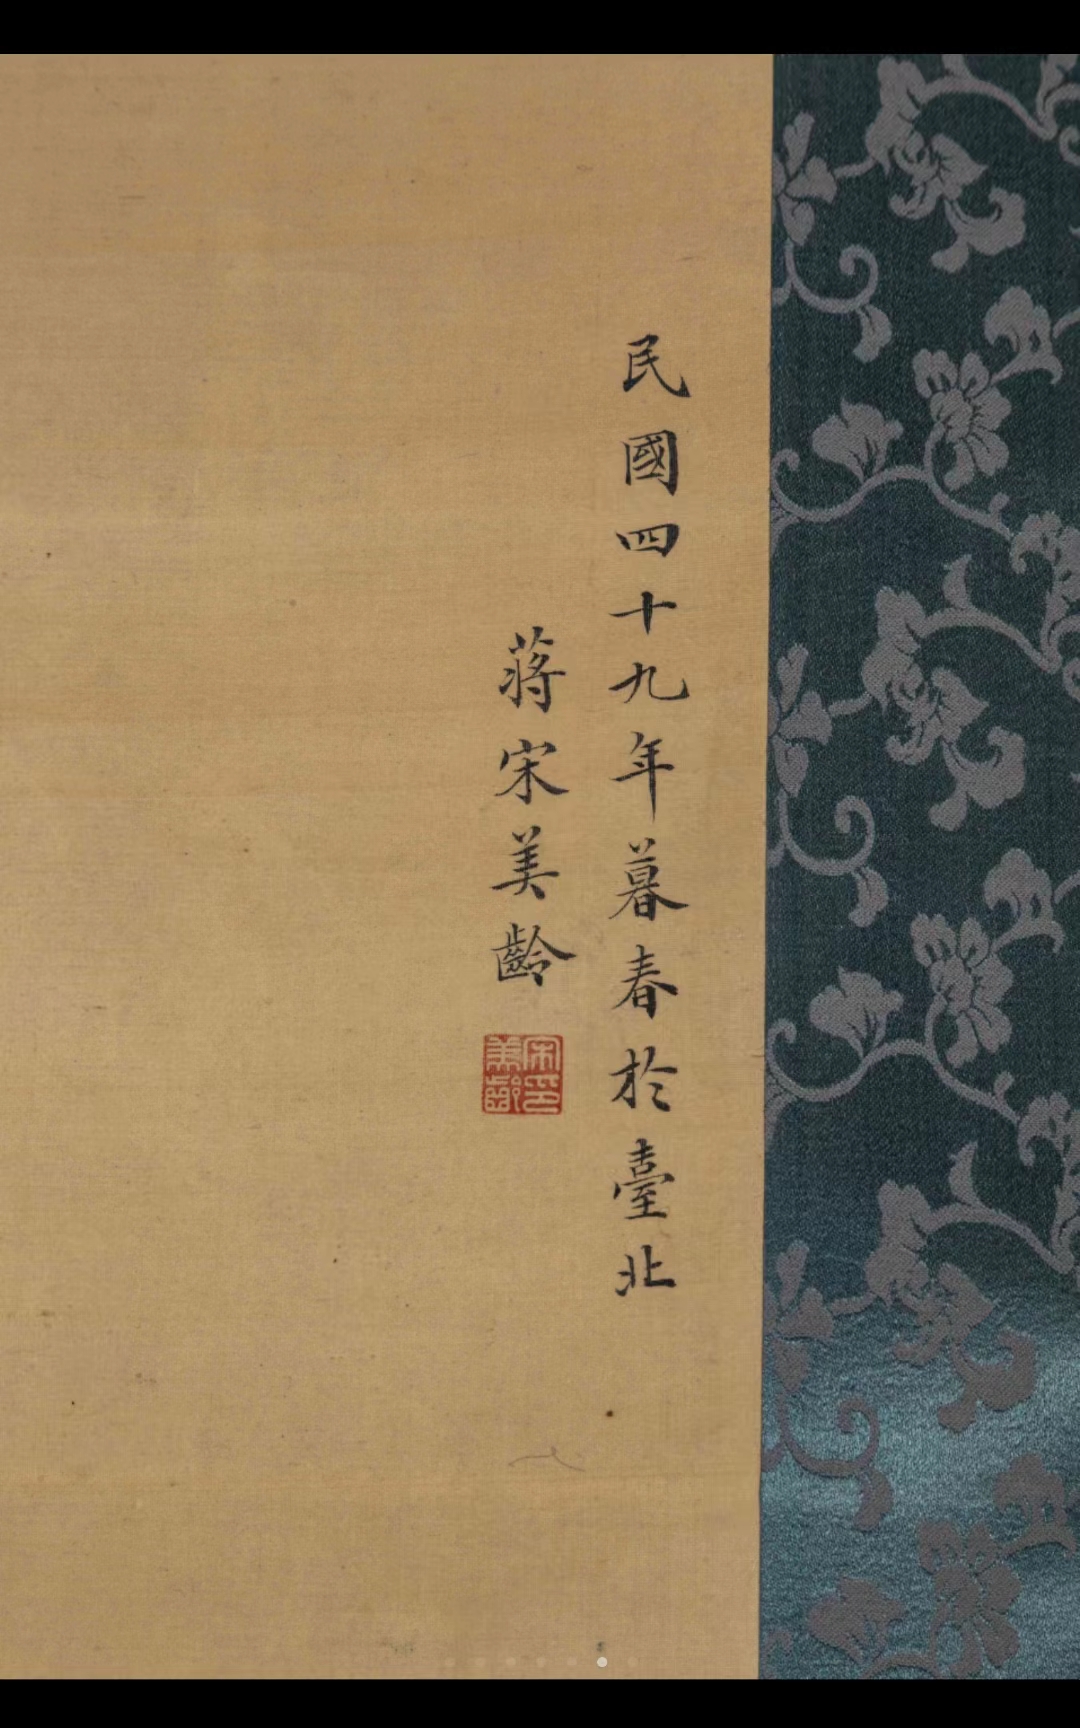 民國四十九年暮春於臺北
蔣宋美齡
宋美齡印